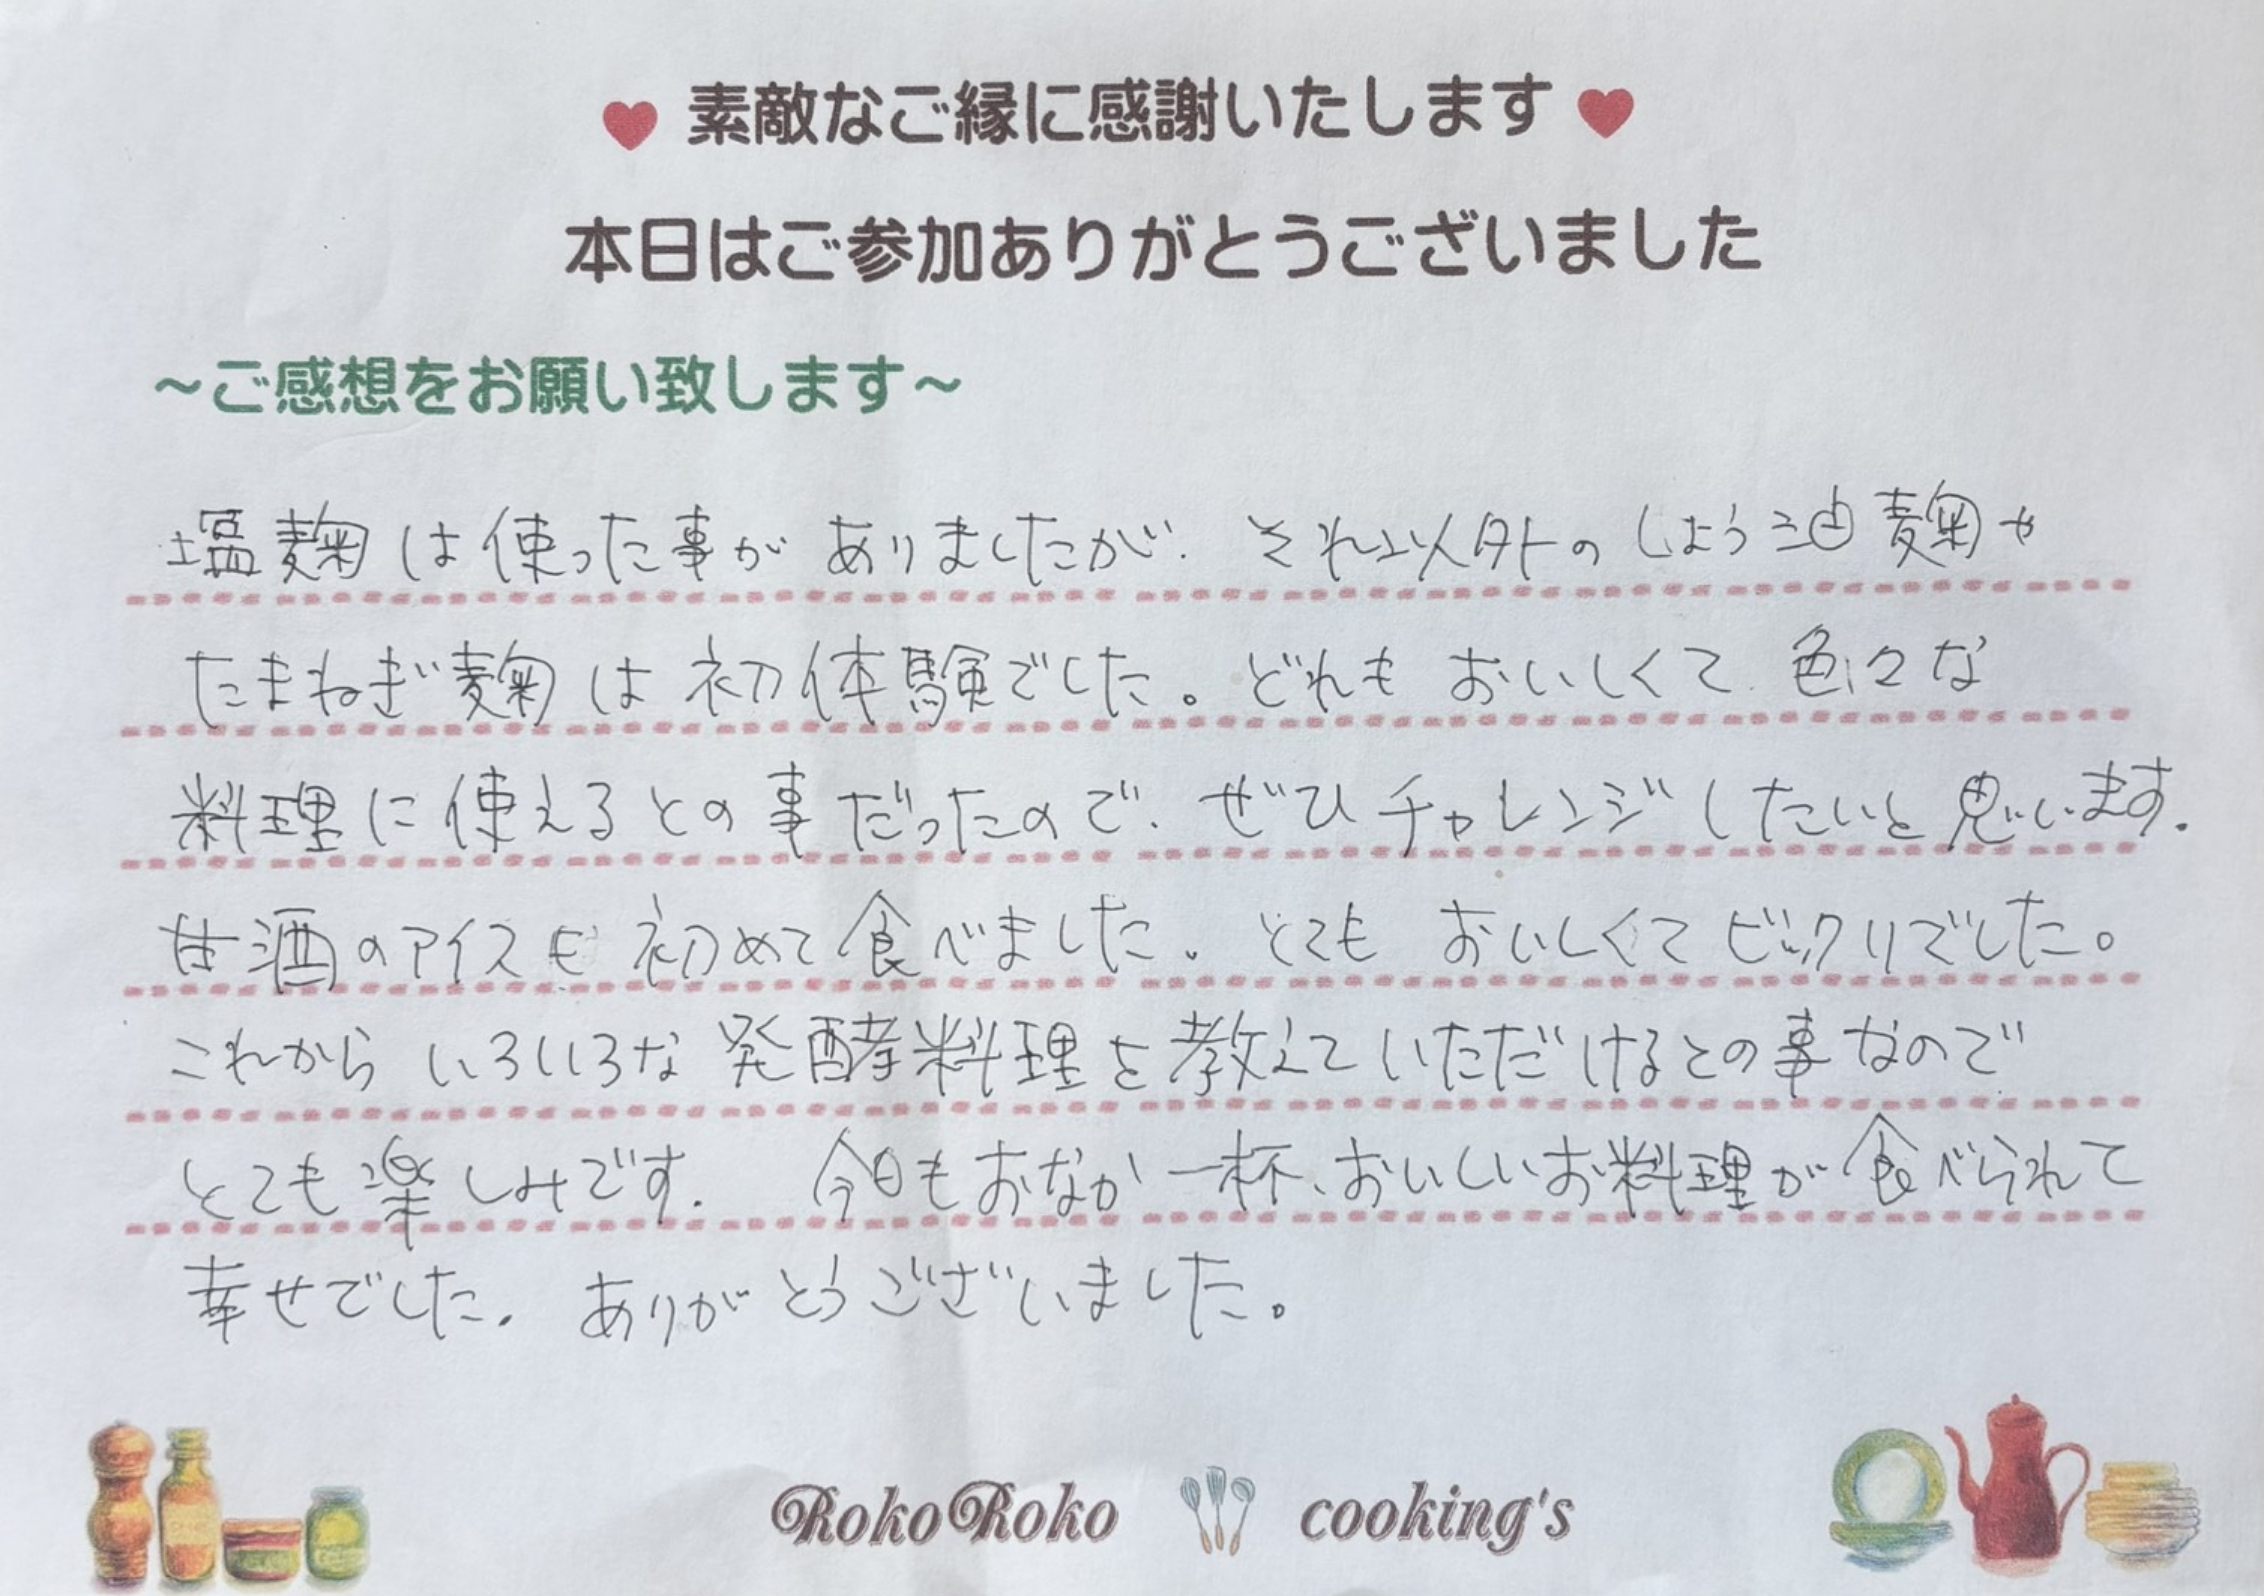 ♥ 素敵なご縁に感謝いたします ♥
本日はご参加ありがとうございました
～ご感想をお願い致します～
塩麹は使った事がありましたが、それ以外のしょう油麹や
たまねぎ麹は初体験でした。どれもおいしくて、色々な
料理に使えるとの事だったので、ぜひチャレンジしたいと思います。
甘酒のアイスも初めて食べました。とてもおいしくてビックリでした。
これからいろいろな発酵料理を教えていただけるとの事なので
とても楽しみです。 今日もおなか一杯、おいしいお料理が食べられて
幸せでした。ありがとうございました。
RokoRoko cooking's